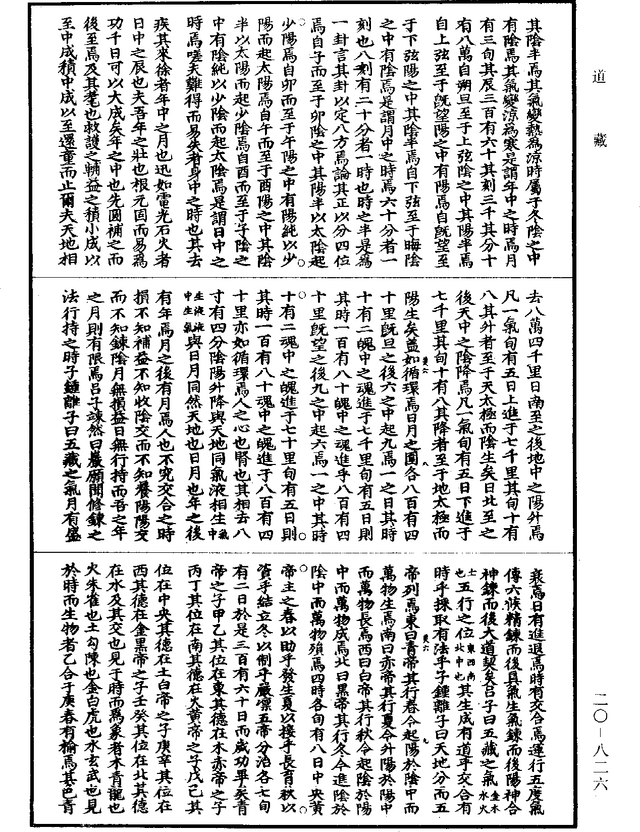 道藏
其陰半焉其氣變熱為涼時屬于冬陰之中
有陰焉其氣變涼為寒是謂年中之時焉月
有三旬其辰三百有六十其刻三千其分十
有八萬自朔旦至于上弦陰之中其陽半焉
自上弦至于旣望陽之中有陽焉自旣望至
于下弦陽之中其陰半焉自下弦至于晦陰
之中有陰焉是謂月中之時焉六十分者一
刻也八刻有二十分者一時也時之半是為
一卦言其卦以定八方焉論其正以分四位
焉自子而至于卯陰之中其陽半以太陰起
少陽焉自卯而至于午陽之中有陽純以少
陽而起太陽焉自午而至于酉陽之中其陰
半以太陽而起少陰焉自酉而至于子陰之
中有陰純以少陰而起太陰焉是謂日中之
時焉嗟夫難得而易失者身中之時也其去
疾其來徐者年中之月也迅如電光石火者
日中之辰也夫吾年之壯也根元固而易為
功千日可以大成矣年之中也先圓補之而
後至焉及其耄也救護之輔益之積小成以
至中成積中成以至還童而止爾夫天地相
去八萬四千里日南至之後地中之陽升焉
凡一氣旬有五日上進于七千里其旬十有
八其外者至于天太極而陰生矣日北至之
後天中之陰降焉凡一氣旬有五日下進于
七千里其旬十有八其降者至于地太極而
陽生矣蓋如循環焉日月之圍各八百有四
十里旣旦之後六之中起九焉一之日其時
十有二魄中之魂進于七千里旬有五日則
其時一百有八十魄中之魂進乎八百有四
十里旣望之後九之中起六焉一之中其時
十有二魂中之魄進于七十里旬有五日則
其時一百有八十魂中之魄進于八百有四
十里亦如循環焉人之心也腎也其相去八
寸有四分陰陽升降與天地同氣液相生氣中
生液液中生氣與日月同然天地也日月也年之後
有年焉月之後有月焉人也不究交合之時
損不知補益不知收陰交而不知養陽陽交
而不知鍊陰月無損益日無行持而吾之年
之月則有限焉呂子竦然曰嚴願聞修鍊之
法行持之時子鍾離子曰五藏之氣月有盛
衰焉日有進退焉時有交合焉運行五度氣
傳六候精鍊而後具氣生氣鍊而後陽神合
神鍊而後大道契矣呂子曰五藏之氣金木水火
土也五行之位東西南北中也其生成有道乎交合有
時乎採取有法乎子鍾離子曰天地分而五
帝列焉東曰青帝其行春令起陽於陰中而
萬物生焉南曰赤帝其行夏令升陽於陽中
而萬物長焉西曰白帝其行秋令起陰於陽
中而萬物成焉北曰黑帝其行冬令進陰於
陰中而萬物殞焉四時各旬有八日中央黃
帝主之春以助乎發生夏以接乎長育秋以
資乎結立冬以制乎嚴凜五帝分治各七旬
有二日於是三百有六十日而歲功畢矣青
帝之子甲乙其位在東其德在木赤帝之子
丙丁其位在南其德在火黃帝之子戊己其
位在中央其德在土白帝之子庚辛其位在
西其德在金黑帝之子壬癸其位在北其德
在水及其交也見于時而為象者木青龍也
火朱雀也土勾陳也金白虎也水玄武也見
於時而生物者乙合于庚春有榆焉其色青
二〇—八二六